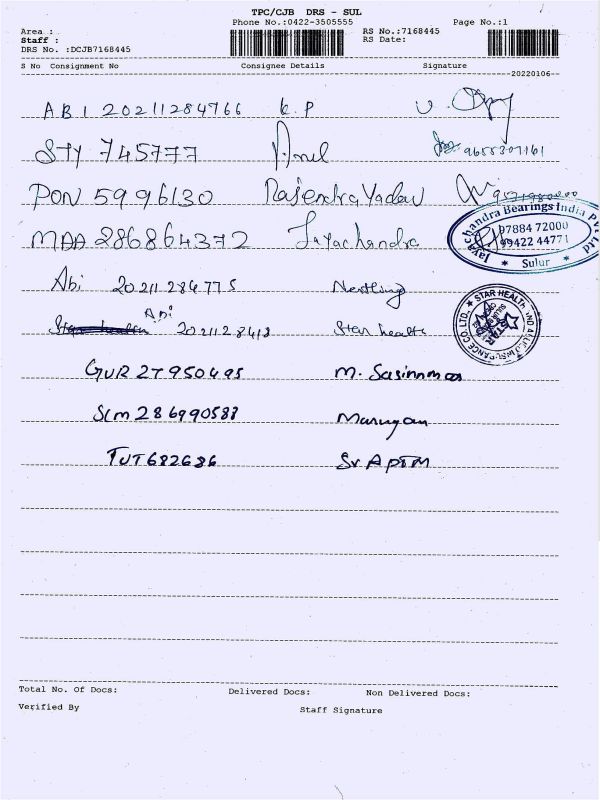 TPC/CJB DRS - SUL
Phone No.:0422-3505555 Page No.:1
Area :
RS No.:7168445
Staff :
RS Date:
DRS No. :DCJB7168445
S No Consignment No Consignee Details Signature
20220106
ABI 20211284766 K.P
STY 745777 Anil 9655307161
PON 5996130 Rajendra Yadav
MAA 286864372 Jayachandra
Jayachandra Bearings India Pvt Ltd
97884 72000
99422 44771
* Sulur *
Abi 20211284775 Nestling
Abi
2021128413 Star health
STAR HEALTH
GUR 27950495 M.
SLM 286990588 Murugan
TUT682686 Sr APTM
Total No. Of Docs: Delivered Docs: Non Delivered Docs:
Verified By Staff Signature